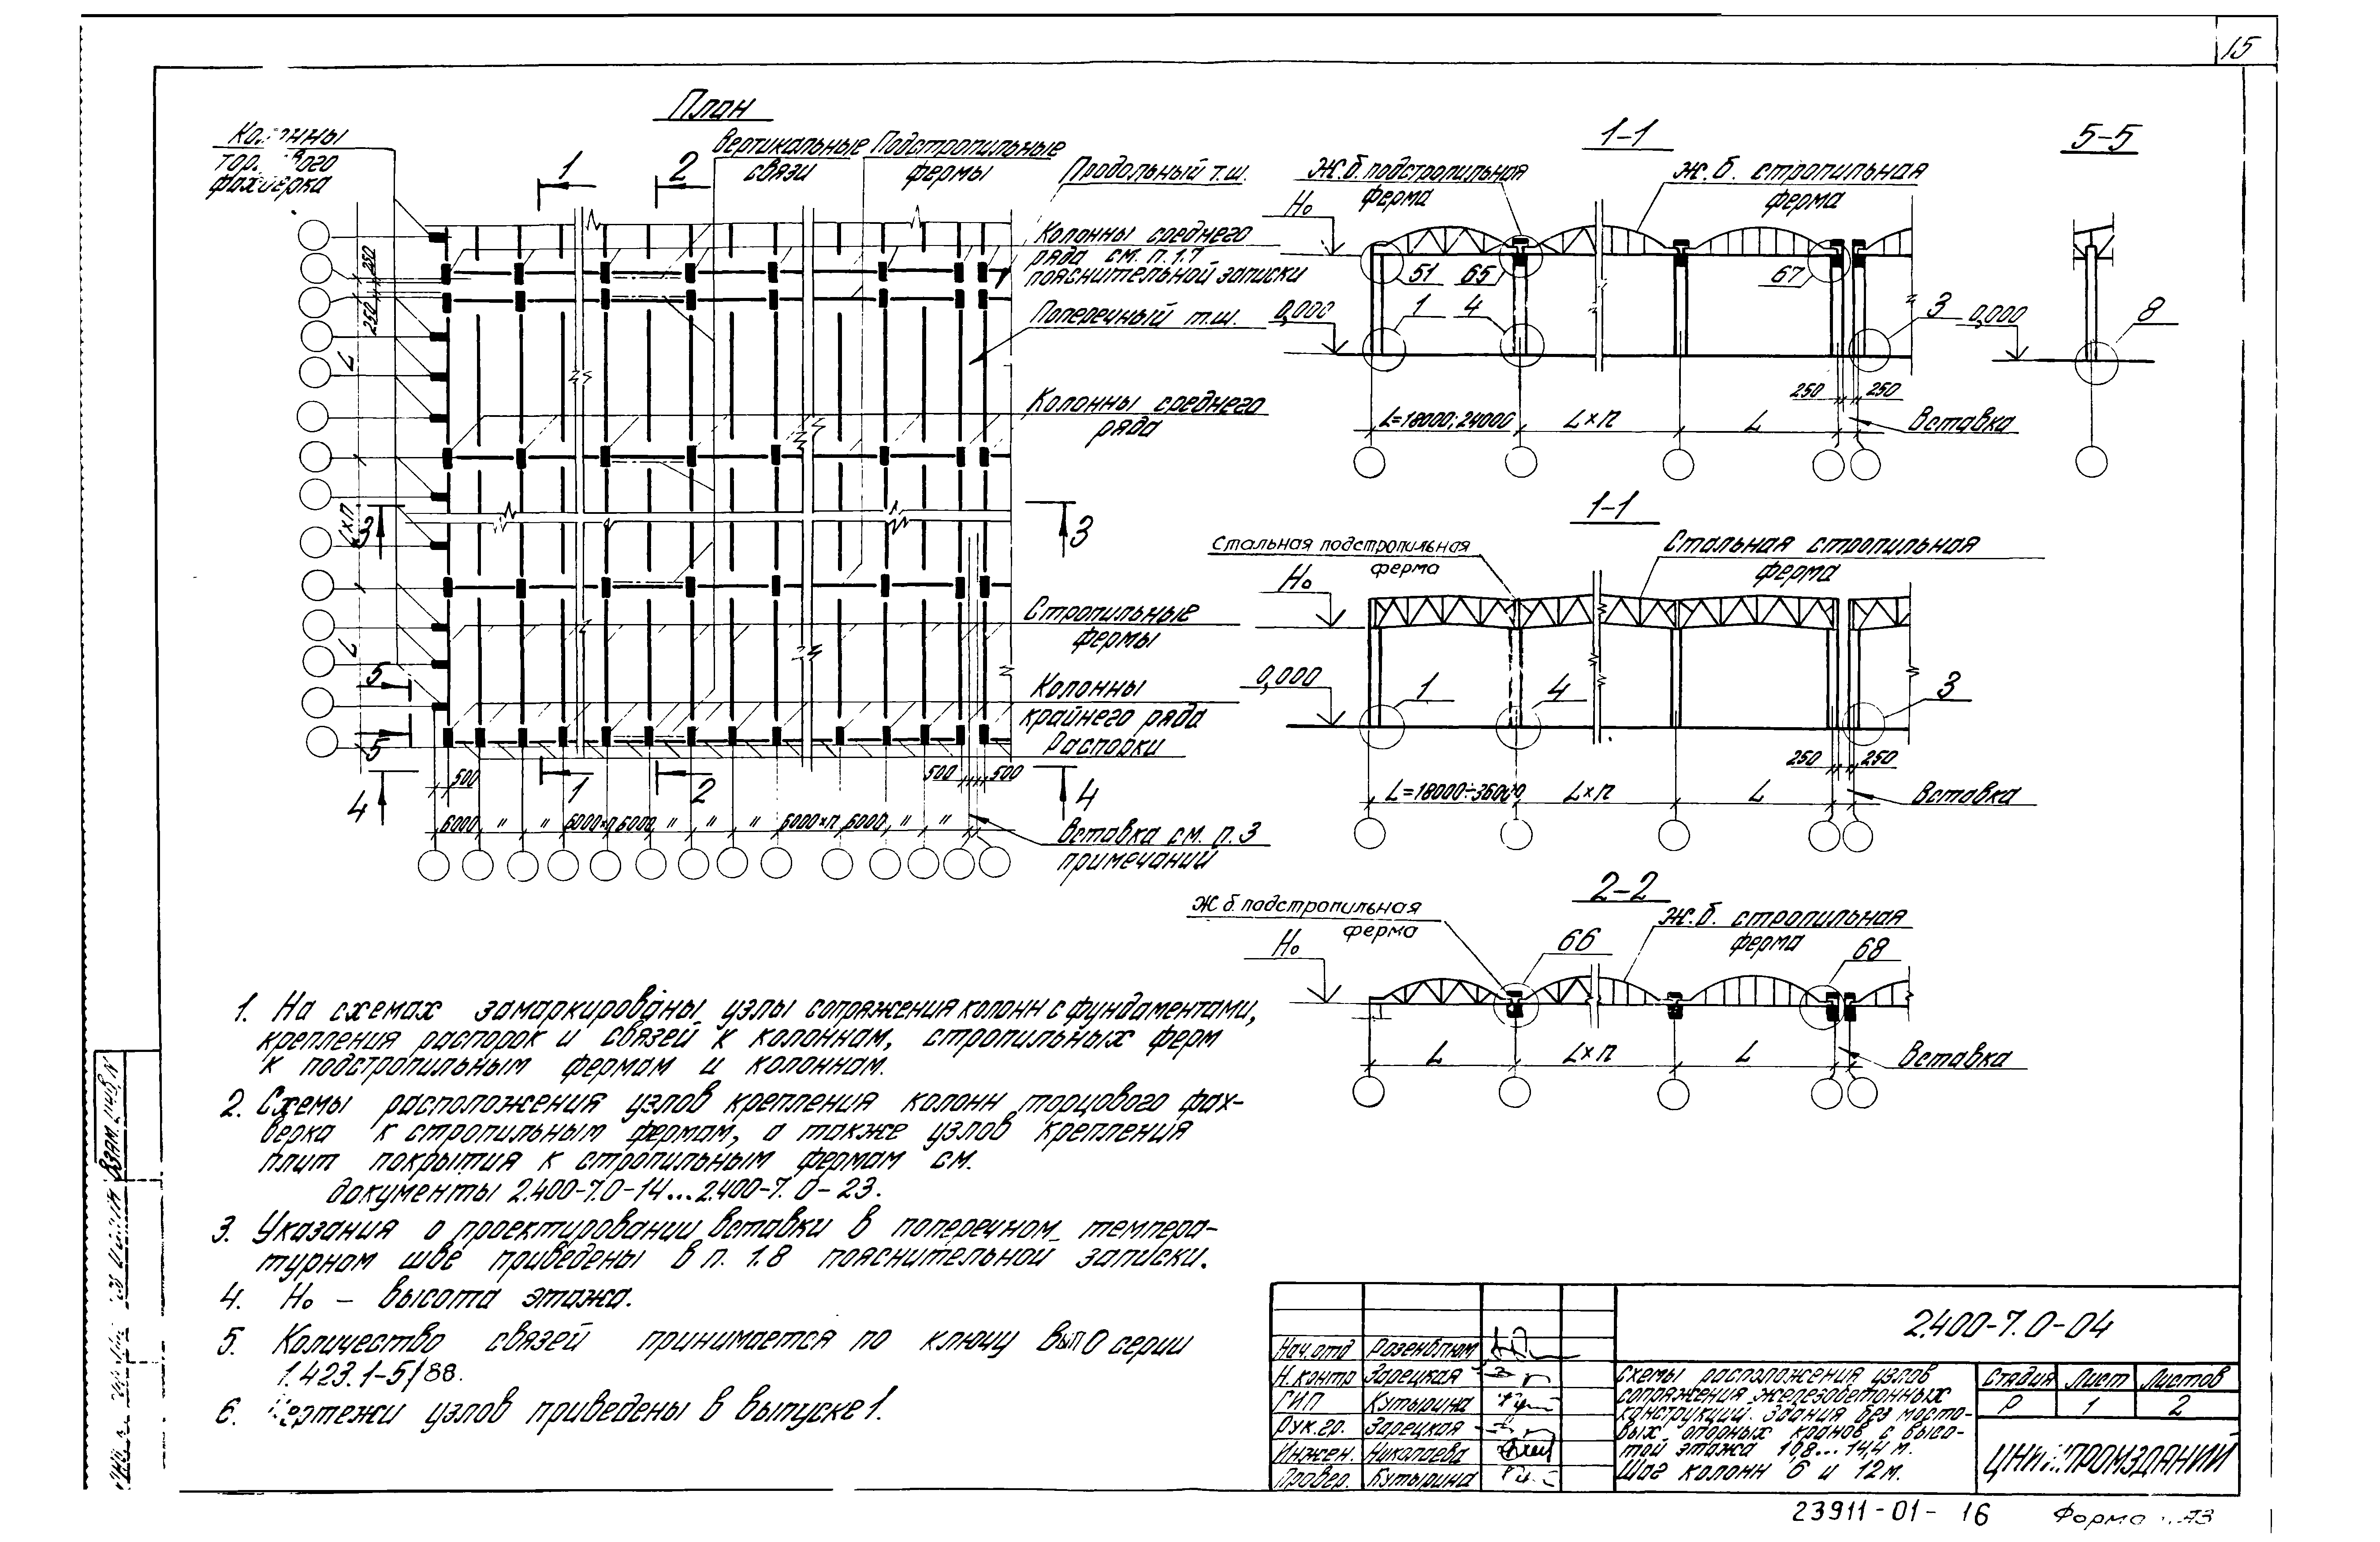 15
План
Колонны
торцового
фахверка
1
2
Вертикальные
связи
Подстропильные
фермы
Продольный т.ш.
Колонны среднего
ряда см. п. 1.7
пояснительной записки
Поперечный т.ш.
Колонны среднего
ряда
250
250
L
L×n
L
3
3
Стропильные
фермы
Колонны
крайнего ряда
Распорки
5
5
4
4
500
1
2
500
500
6000 " " 6000×n 6000 " " " 6000×n 6000 " "
Вставка см. п. 3
примечаний
1-1
Ж.б. подстропильная
ферма
Ж.б. стропильная
ферма
Н₀
51
65
67
0,000
1
4
3
250
250
L=18000; 24000
L×n
L
Вставка
5-5
0,000
8
1-1
Стальная подстропильная
ферма
Стальная стропильная
ферма
Н₀
0,000
1
4
3
250
250
L=18000÷36000
L×n
L
Вставка
2-2
Ж.б. подстропильная
ферма
Ж.б. стропильная
ферма
Н₀
66
68
L
L×n
L
Вставка
1. На схемах замаркированы узлы сопряжения колонн с фундаментами,
крепления распорок и связей к колоннам, стропильных ферм
к подстропильным фермам и колоннам.
2. Схемы расположения узлов крепления колонн торцового фах-
верка к стропильным фермам, а также узлов крепления
плит покрытия к стропильным фермам см.
документы 2.400-7.0-14...2.400-7.0-23.
3. Указания о проектировании вставки в поперечном темпера-
турном шве приведены в п. 1.8 пояснительной записки.
4. Н₀ – высота этажа.
5. Количество связей принимается по ключу вып 0 серии
1.423.1-5/88.
6. Чертежи узлов приведены в выпуске 1.
Взам. инв. N
2.400-7.0-04
Нач. отд Розенблюм
Н. контр Зарецкая
ГИП Кутырина
Рук. гр. Зарецкая
Инжен. Николаева
Провер. Кутырина
Схемы расположения узлов
сопряжения железобетонных
конструкций. Здания без мосто-
вых опорных кранов с высо-
той этажа 10,8...14,4 м.
Шаг колонн 6 и 12 м.
Стадия Лист Листов
Р 1 2
ЦНИИПРОМЗДАНИЙ
23911-01- 16
Форма А3